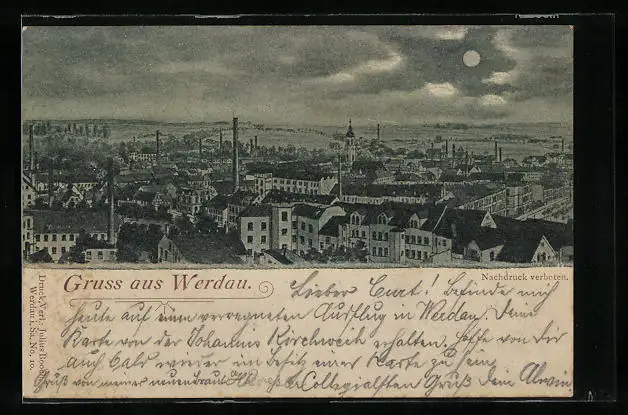 Gruss aus Werdau.
Nachdruck verboten.
Lieber Curt! Befinde mich
heute auf einen verregneten Ausflug in Werdau. Deine
Karte von der Johannis Kirchweih erhalten. Hoffe von Dir
auch bald wieder im Besitz einer Karte zu sein
Gruß von meiner Collegialsten Gruß Dein Alwin
Druck u. Verl. Julius Booch
Werdau i. Sa. No. 10.